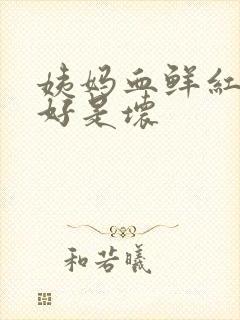 姨妈血鲜红
好是坏
和若曦